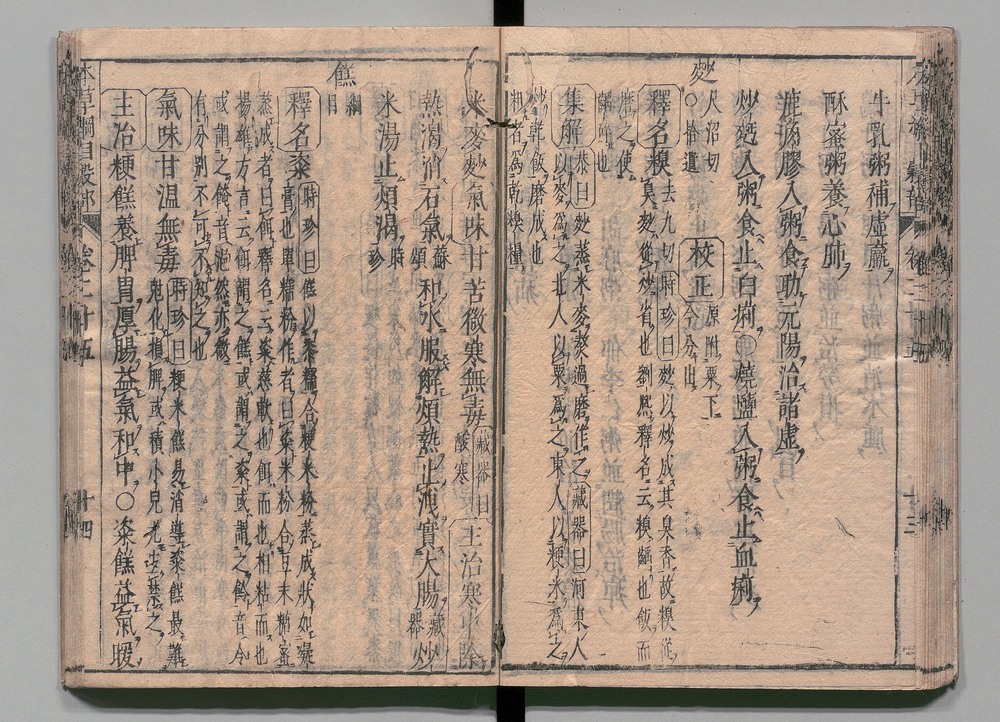 牛乳粥補虛羸
酥蜜粥養心肺
鹿腎粥
鹿角膠入粥食助元陽治諸虛
炒麪入粥食止白痢○燒鹽入粥食止血痢
麨
尺沼切 校正原附粟下
○拾遺 今分出
釋名糗去九切時珍曰麨以炒成其臭香故糗從
臭麨從炒省也劉熙釋名云糗齲也飯而
磨之使
齲碎也
集解恭曰麨蒸米麥熬過磨作之藏器曰河東人
以麥爲之北人以粟爲之東人以粳米爲之
炒乾飯磨成也
粗者爲乾糗糧
米麥麨氣味甘苦微寒無毒藏器曰酸寒主治寒中除
熱渴消石氣蘇頌和水服解煩熱止洩實大腸藏器炒
米湯止煩渴時珍
餻
綱目
釋名粢時珍曰餻以黍糯合粳米粉蒸成狀如凝
膏也單糯粉作者曰粢米粉合豆末糖蜜
蒸成者曰餌釋名云粢慈軟也餌而也相粘而也
揚雄方言云餌謂之餻或謂之粢或謂之䬳音令
或謂之䬧音浥然亦微
有分別不可不知之也
氣味甘温無毒時珍曰粳米餻易消導粢餻最難
剋化損脾或積小兒尤宜禁之
主治粳餻養脾胃厚腸益氣和中○粢餻益氣暖
本草綱目穀部 卷二十五 十四